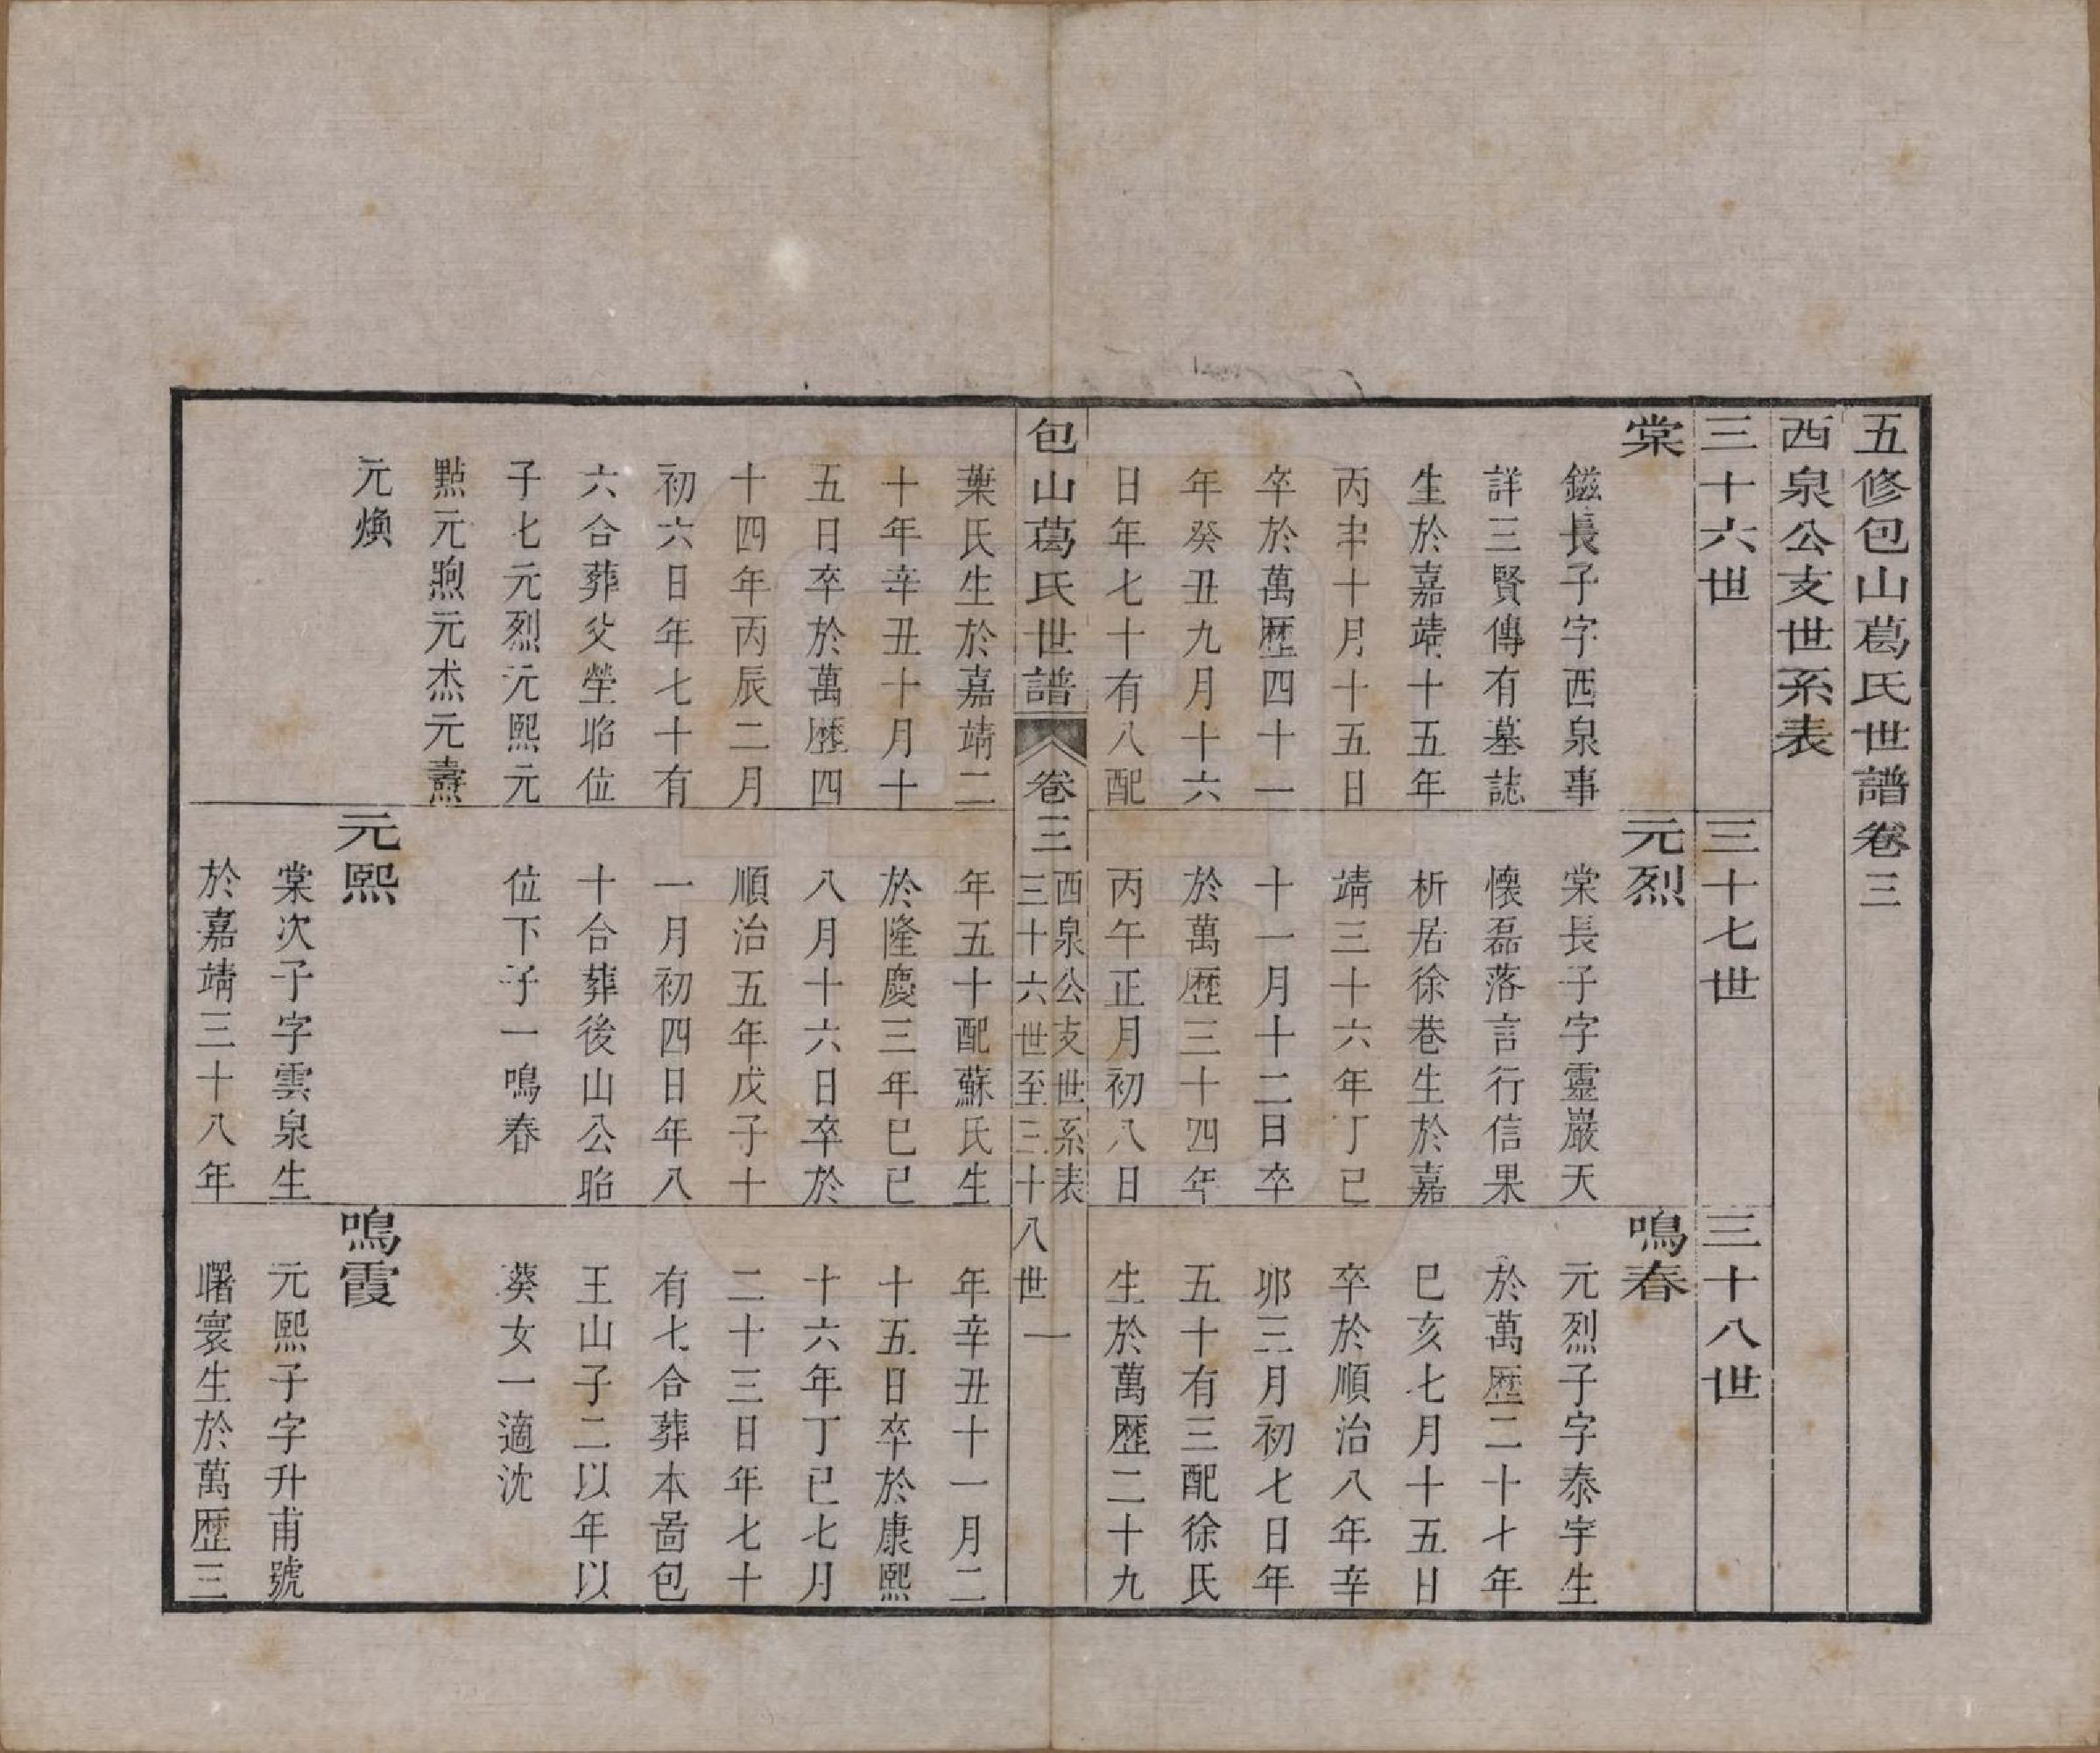 五修包山葛氏世譜卷三
西泉公支世系表
三十六世
棠
鎡長子字西泉事
詳三賢傳有墓誌
生於嘉靖十五年
丙申十月十五日
卒於萬歷四十一
年癸丑九月十六
日年七十有八配
葉氏生於嘉靖二
十年辛丑十月十
五日卒於萬歷四
十四年丙辰二月
初六日年七十有
六合葬父塋昭位
子七元烈元熙元
點元煦元杰元燾
元煥
三十七世
元烈
棠長子字靈巖天
懷磊落言行信果
析居徐巷生於嘉
靖三十六年丁巳
十一月十二日卒
於萬歷三十四年
丙午正月初八日
年五十配蘇氏生
於隆慶三年巳巳
八月十六日卒於
順治五年戊子十
一月初四日年八
十合葬後山公昭
位下子一鳴春
元熙
棠次子字雲泉生
於嘉靖三十八年
三十八世
鳴春
元烈子字泰宇生
於萬歷二十七年
巳亥七月十五日
卒於順治八年辛
卯三月初七日年
五十有三配徐氏
生於萬歷二十九
年辛丑十一月二
十五日卒於康熙
十六年丁巳七月
二十三日年七十
有七合葬本啚包
王山子二以年以
葵女一適沈
鳴霞
元熙子字升甫號
曙寰生於萬歷三
包山葛氏世譜
卷三
西泉公支世系表
三十六世至三十八世
一